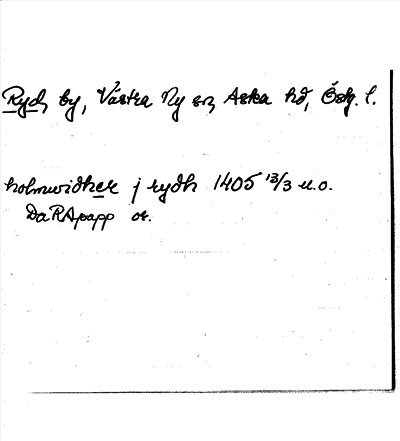 Ryd, by, Västra Ny sn, Aska hd, Östg. l.
holmwidher j rydh 1405 13/3 u.o.
DaRApapp or.